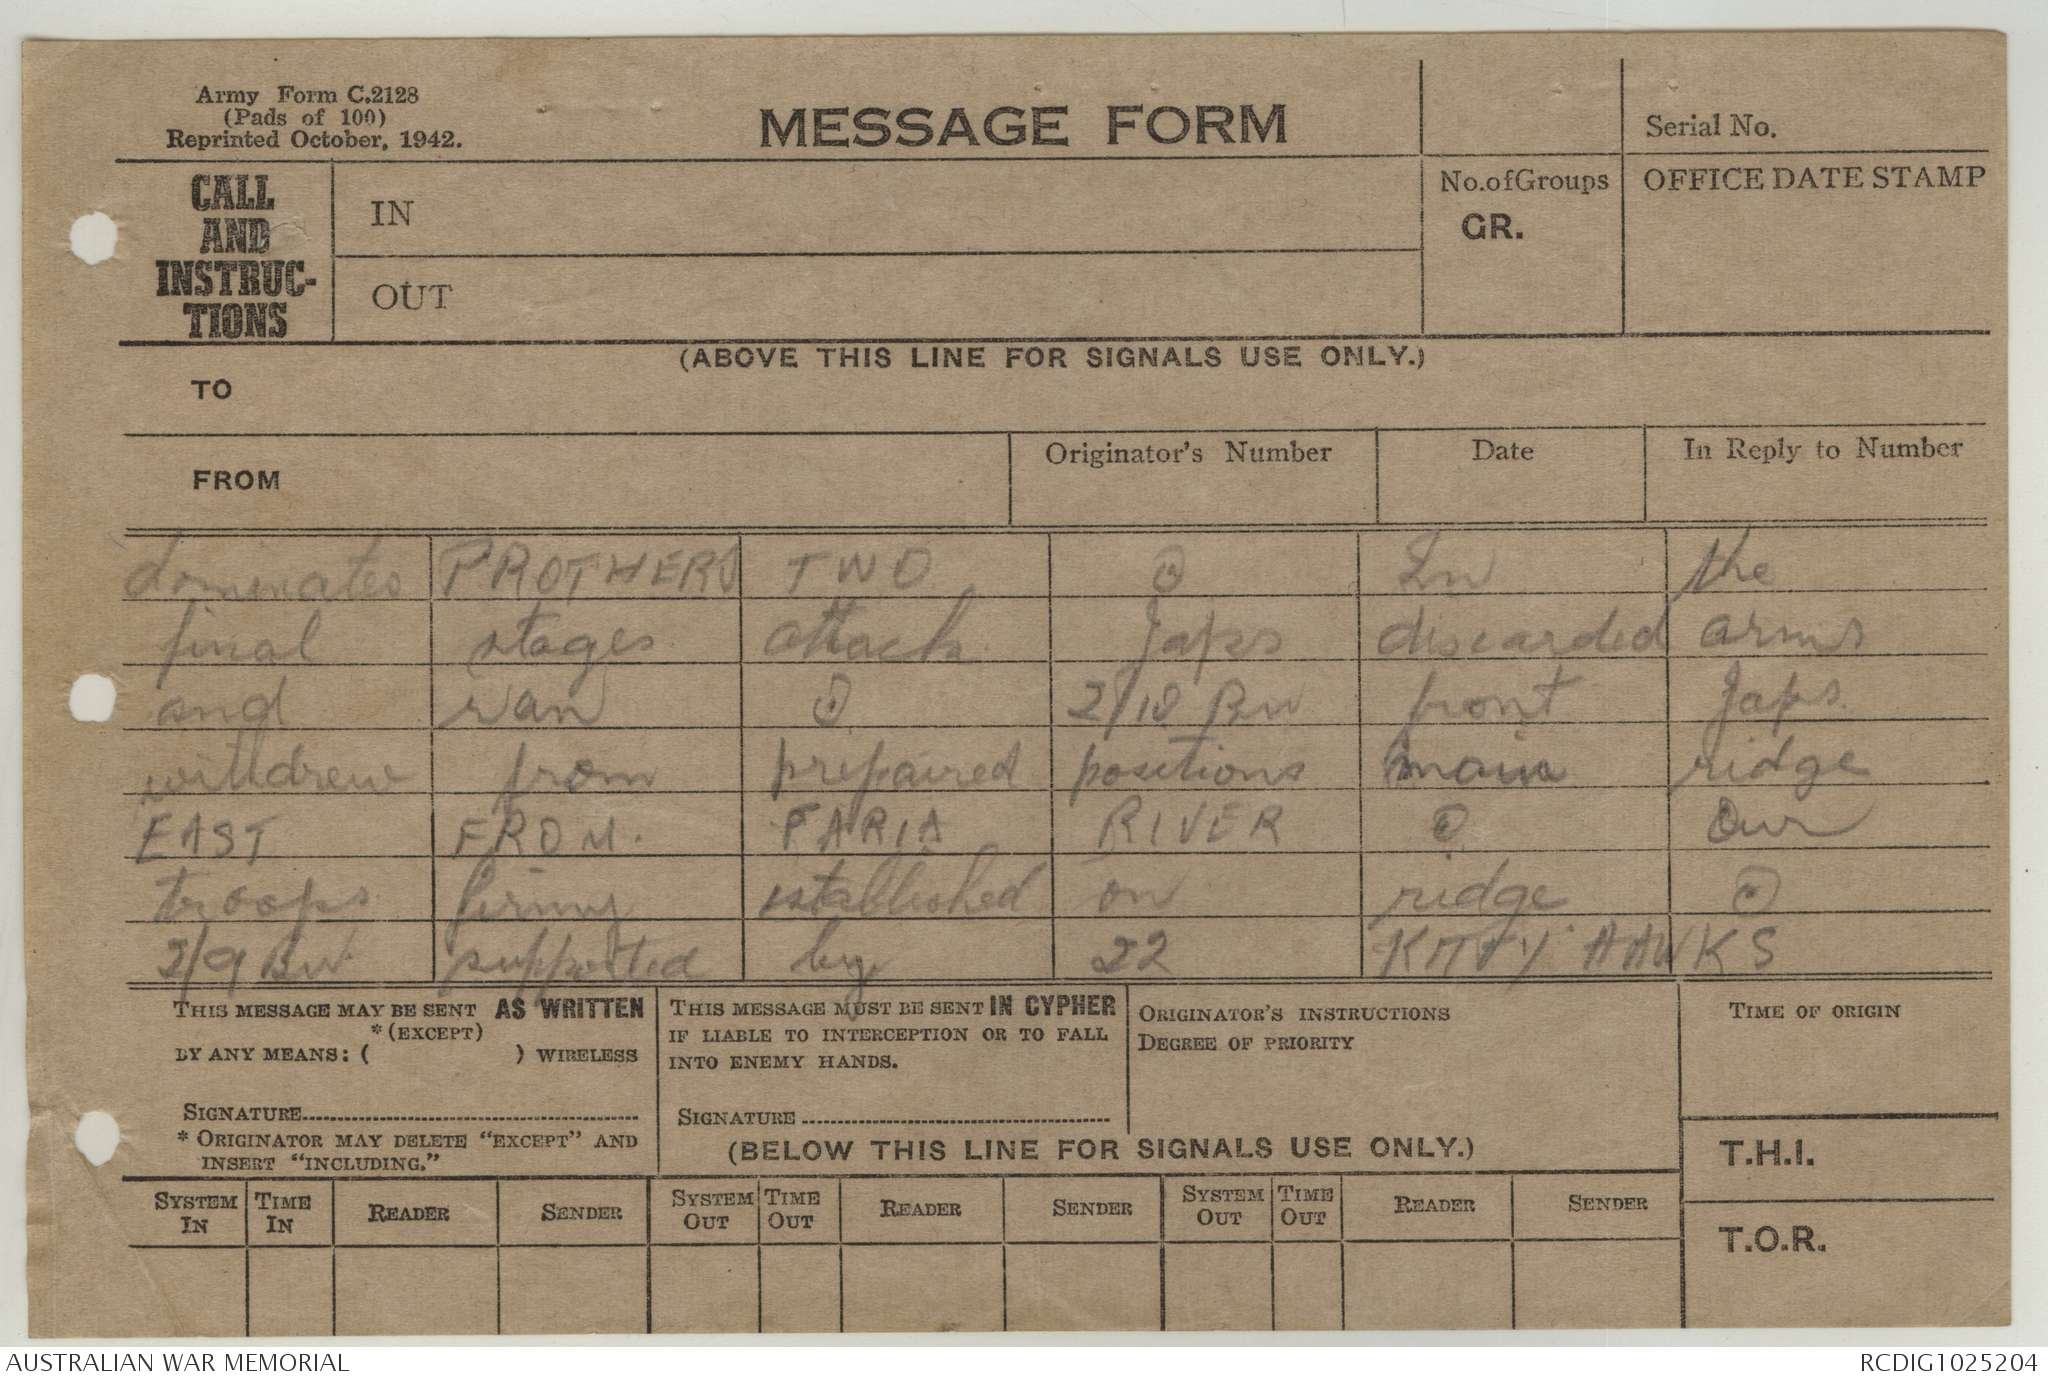 Army Form C.2128
(Pads of 100)
Reprinted October, 1942.
MESSAGE FORM
Serial No.
CALL AND INSTRUC-TIONS
IN
OUT
No. of Groups
GR.
OFFICE DATE STAMP
(ABOVE THIS LINE FOR SIGNALS USE ONLY.)
TO
FROM
Originator's Number
Date
In Reply to Number
dominates PROTHERS TWO ⊙ In the
final stages attack Japs discarded arms
and ran ⊙ 2/10 Bn front Japs
withdrew from prepaired positions main ridge
EAST FROM. FARIA RIVER ⊙ Our
troops firmly established on ridge ⊙
2/9 Bn supported by 22 KITTY HAWKS
THIS MESSAGE MAY BE SENT AS WRITTEN
*(EXCEPT)
BY ANY MEANS: ( ) WIRELESS
SIGNATURE
* ORIGINATOR MAY DELETE "EXCEPT" AND
INSERT "INCLUDING."
THIS MESSAGE MUST BE SENT IN CYPHER
IF LIABLE TO INTERCEPTION OR TO FALL
INTO ENEMY HANDS.
SIGNATURE
ORIGINATOR'S INSTRUCTIONS
DEGREE OF PRIORITY
TIME OF ORIGIN
(BELOW THIS LINE FOR SIGNALS USE ONLY.)
T.H.I.
T.O.R.
SYSTEM IN TIME IN READER SENDER SYSTEM OUT TIME OUT READER SENDER SYSTEM OUT TIME OUT READER SENDER
AUSTRALIAN WAR MEMORIAL
RCDIG1025204